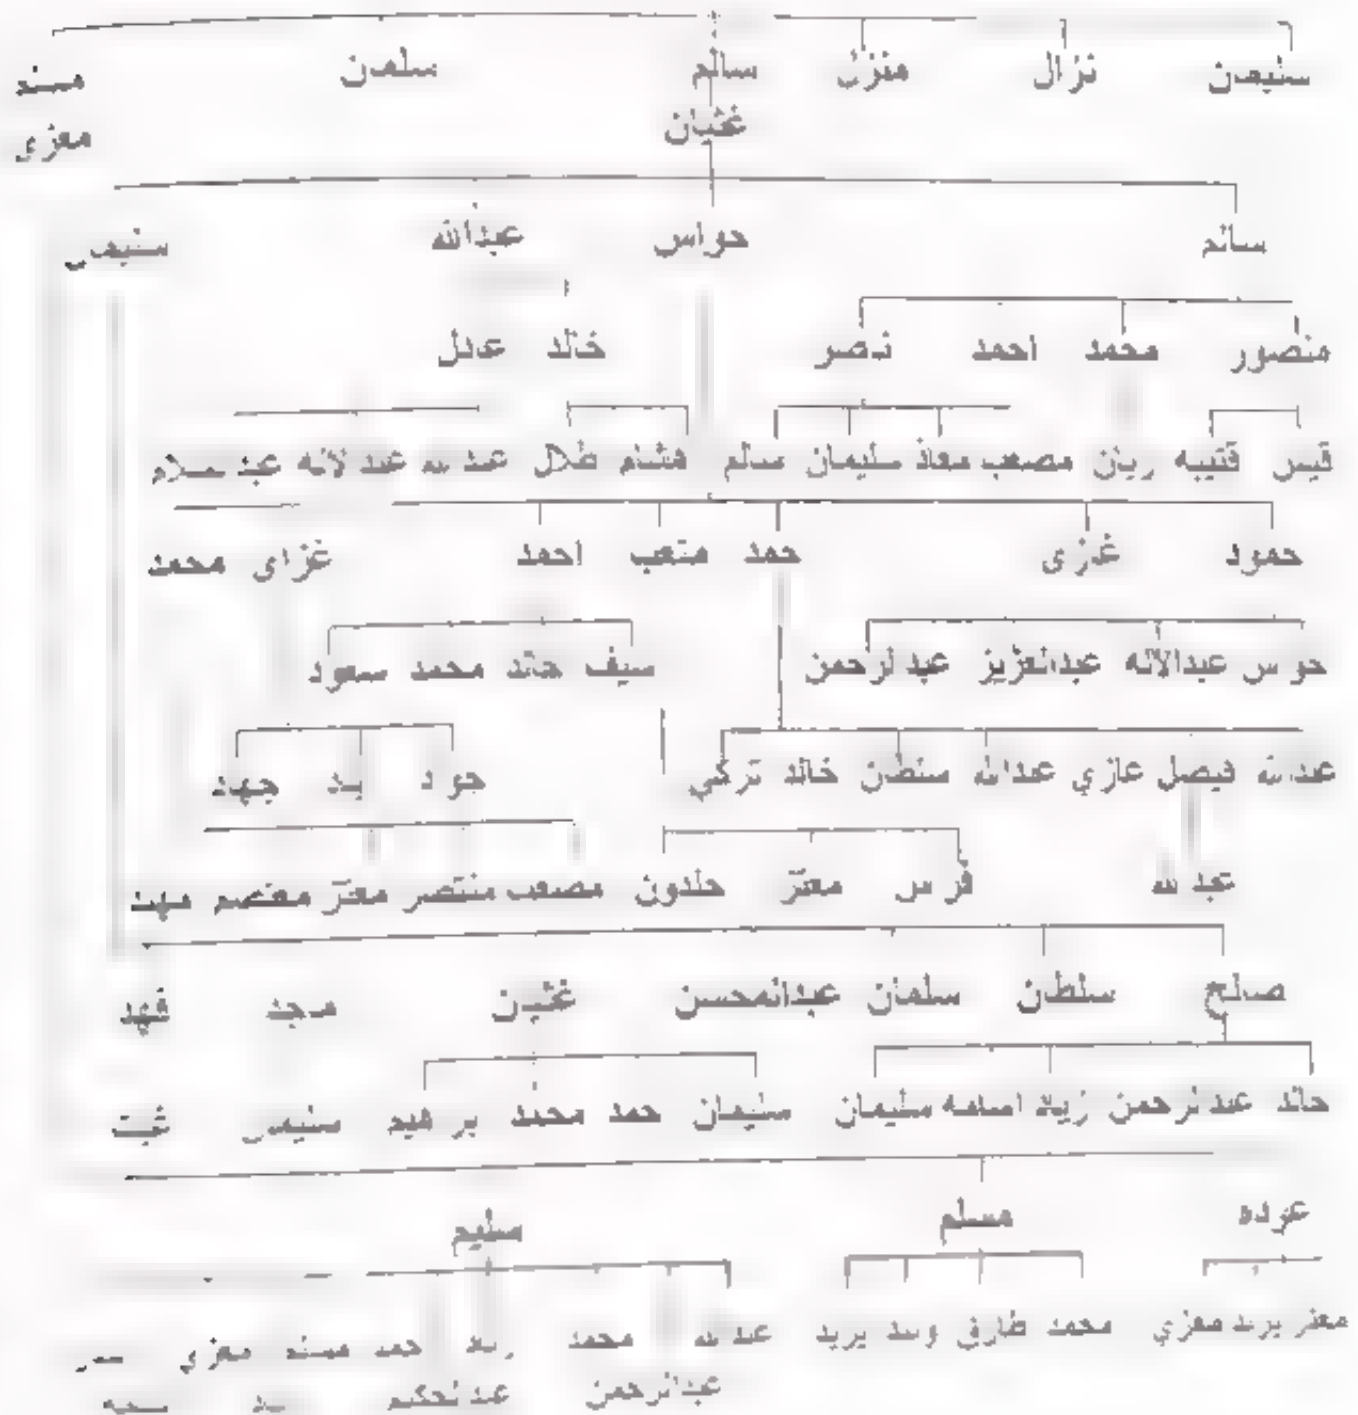 سليمان نزال منزل سالم سلمان مسند
غثيان معزي
سالم حواس عبدالله سليمان
منصور محمد احمد ناصر خالد عادل
قيس قتيبه ريان مصعب معاذ سليمان سالم هشام طلال عبدالله عبدالاله عبدسلام
حمود غازى حمد متعب احمد غزاى محمد
حواس عبدالاله عبدالعزيز عبدالرحمن سيف خالد محمد سعود
عبدالله فيصل غازي عبدالله سلطان خالد تركي جواد جهاد
عبدالله فراس معتز خلدون مصعب منتصر معتز معتصم مهند
صالح سلطان سلمان عبدالمحسن غثيان فهد
خالد عبدالرحمن زياد اسامه سليمان سليمان حمد محمد برهيم سليمان
عوده مسلم سليم
معزي محمد طارق يزيد عبدالله محمد حمد مسند معزي
عبدالرحمن عبدالحكيم